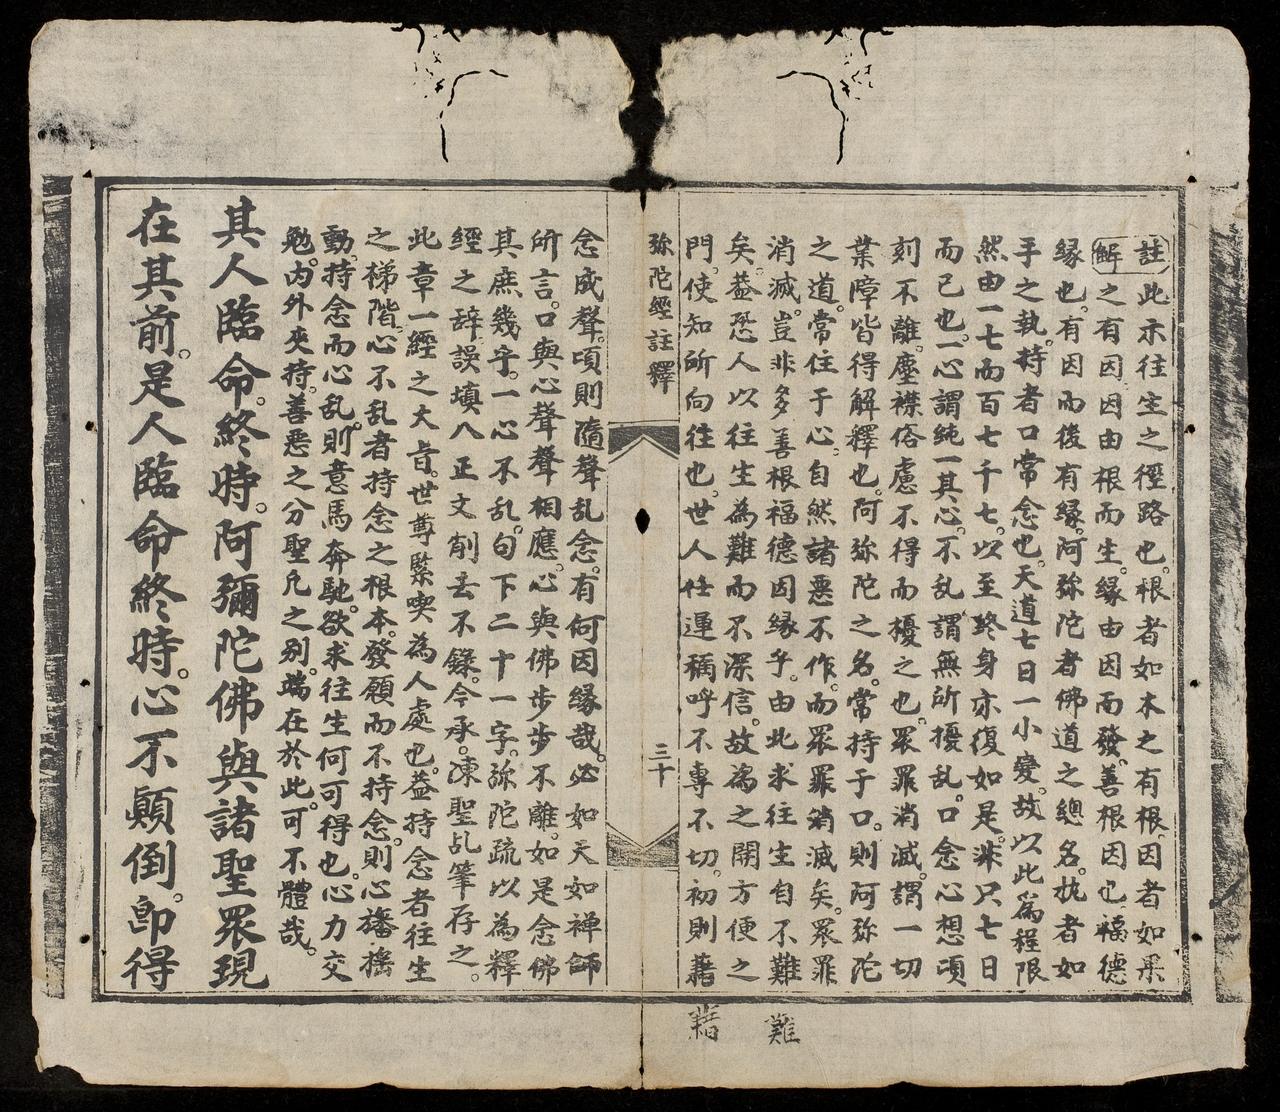 註此示往生之徑路也。根者如木之有根。因者如果
解之有因。因由根而生。緣由因而發。善根因也。福德
緣也。有因而後有緣。阿弥陀者佛道之總名。执者如
手之執。持者口常念也。天道七日一小变。故以此爲程限
然由一七而百七千七。以至終身亦復如是。非只七日
而已也。一心謂純一其心。不乱謂無所擾乱。口念心想頃
刻不離。塵襟俗慮不得而擾之也。眾罪消滅。謂一切
業障皆得解釋也。阿弥陀之名。常持于口。則阿弥陀
之道。常住于心。自然諸惡不作。而眾罪消滅矣。眾罪
消滅。豈非多善根福德因緣乎。由此求往生自不難
矣。蓋恐人以往生為難而不深信。故為之開方便之
門。使知所向往也。世人任運稱呼不專不切。初則藉
弥陀經註釋
三十
念成聲。頃則隨聲乱念。有何因緣哉。必如天如禅師
所言。口與心聲聲相應。心與佛步步不離。如是念佛
其庶幾乎。一心不乱。句下二十一字。弥陀疏以為釋
經之辞誤填入正文削去不錄。今承。凍聖乱筆存之。
此章一經之大旨。世尊緊喫為人處也。蓋持念者往生
之梯階。心不乱者持念之根本。發願而不持念。則心旛搖
動。持念而心乱。則意馬奔馳。欲求往生何可得也。心力交
勉。内外夾持。善惡之分聖凡之別。端在於此。可不體哉。
其人臨命。終時。阿彌陀佛與諸聖眾現
在其前。是人臨命終時。心不顛倒。即得
難
藉